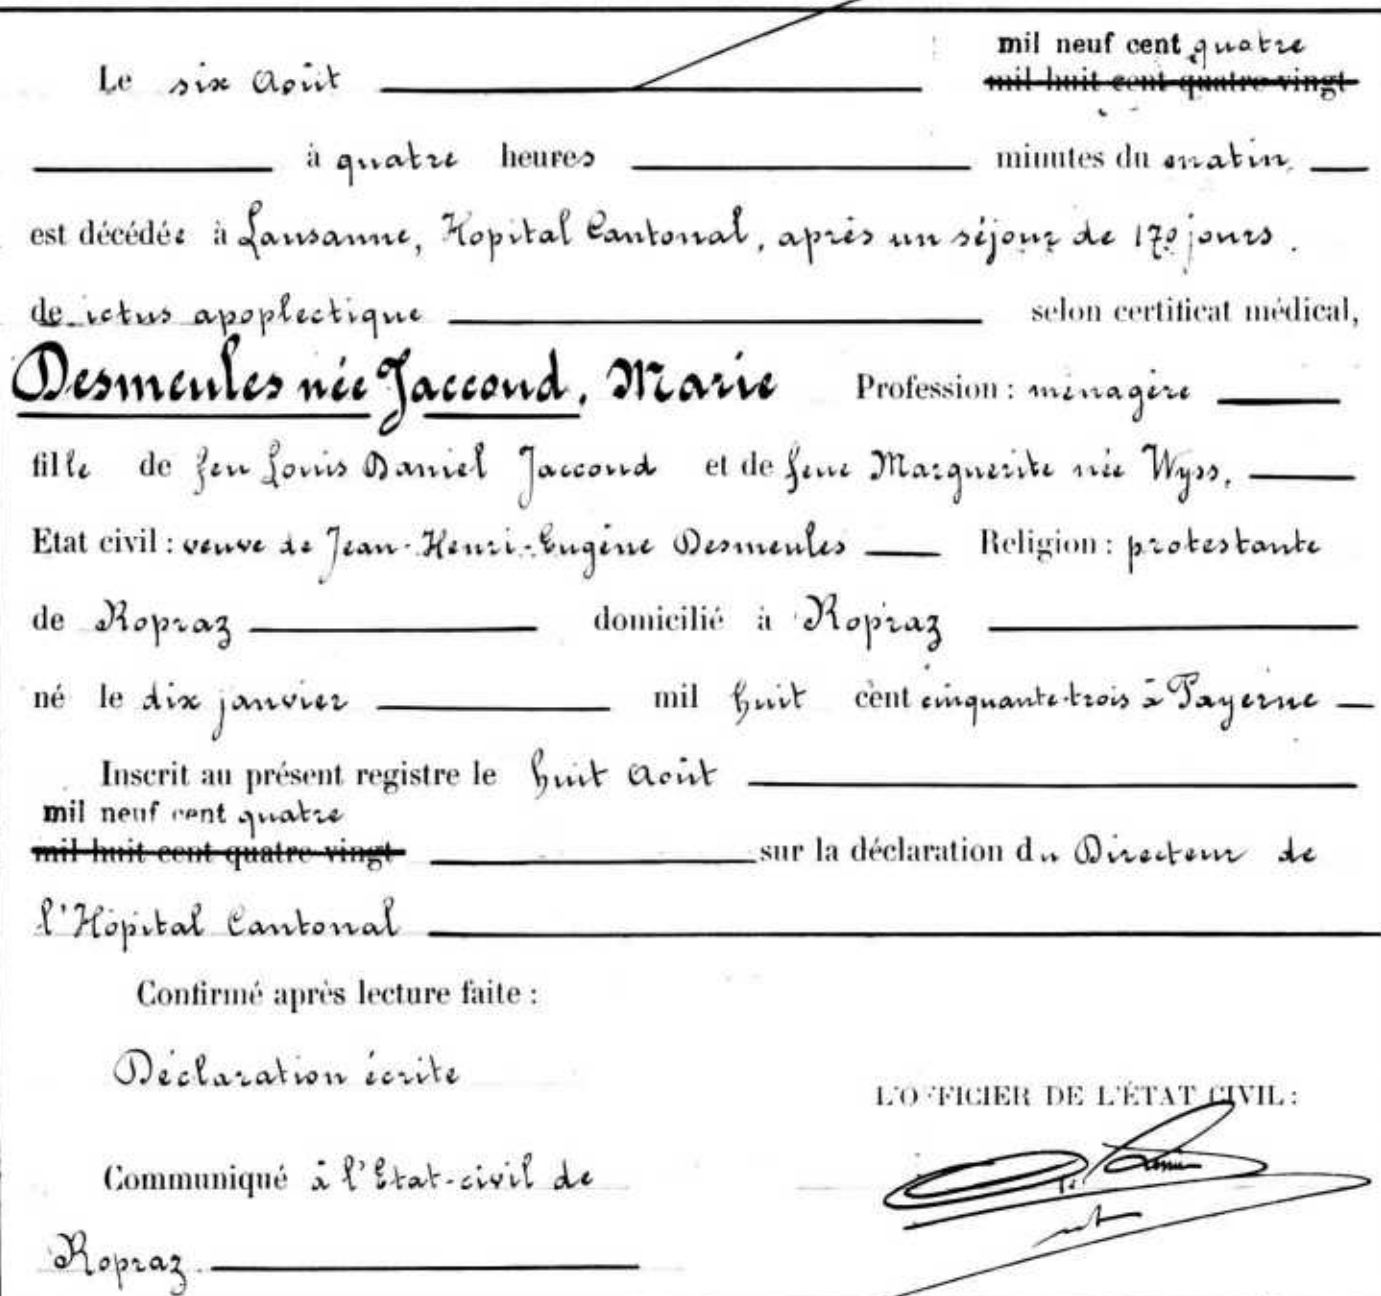 mil neuf cent quatre
Le six Août mil huit cent quatre-vingt
à quatre heures minutes du matin,
est décédée à Lausanne, Hopital Cantonal, après un séjour de 170 jours.
de ictus apoplectique selon certificat médical,
Desmeules née Jaccoud, Marie Profession : ménagère
fille de feu Louis Daniel Jaccoud et de feue Marguerite née Wyss,
Etat civil : veuve de Jean-Henri-Eugène Desmeules Religion : protestante
de Ropraz domicilié à Ropraz
né le dix janvier mil huit cent cinquante-trois à Payerne
Inscrit au présent registre le huit Août
mil neuf cent quatre
mil huit cent quatre-vingt sur la déclaration du Directeur de
l'Hôpital Cantonal
Confirmé après lecture faite :
Déclaration écrite
L'OFFICIER DE L'ÉTAT CIVIL :
Communiqué à l'Etat-civil de
Ropraz.